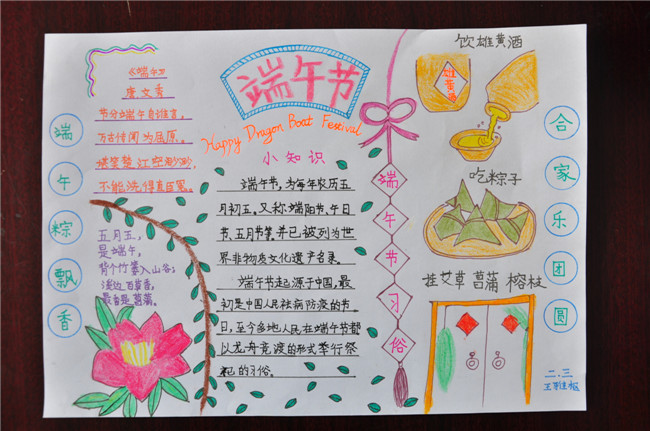 端午节
Happy Dragon Boat Festival
《端午》
唐文秀
节分端午自谁言，
万古传闻为屈原。
堪笑楚江空渺渺，
不能洗得直臣冤。
端午粽飘香
五月五，
是端午，
背个竹篓入山谷；
溪边百草香，
最香是菖蒲。
小知识
端午节，为每年农历五
月初五，又称端阳节、午日
节、五月节等，并已被列为世
界非物质文化遗产名录。
端午节起源于中国，最
初是中国人民祛病防疫的节
日，至今各地人民在端午节都
以龙舟竞渡的形式举行祭
祀的习俗。
端午节习俗
饮雄黄酒
雄黄酒
吃粽子
挂艾草 菖蒲 榕枝
合家乐团圆
二.三